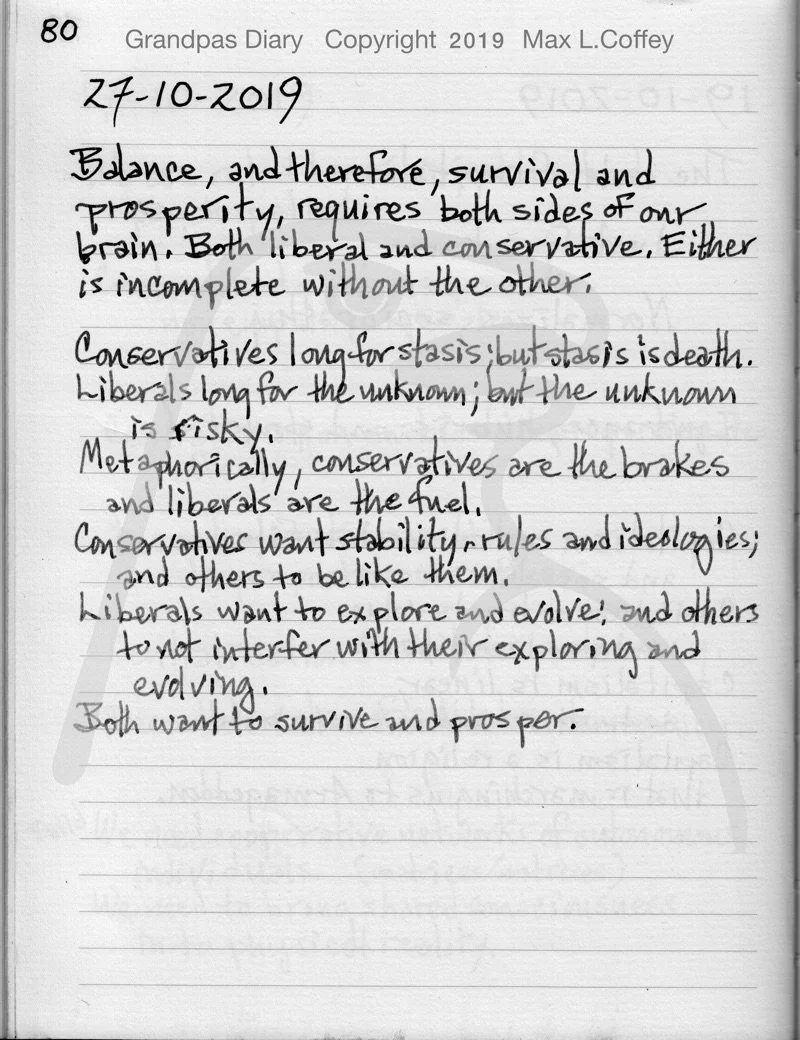 80
Grandpas Diary Copyright 2019 Max L.Coffey
27-10-2019
Balance, and therefore, survival and
prosperity, requires both sides of our
brain. Both liberal and conservative. Either
is incomplete without the other.
Conservatives long for stasis; but stasis is death.
Liberals long for the unknown; but the unknown
is risky.
Metaphorically, conservatives are the brakes
and liberals are the fuel.
Conservatives want stability, rules and ideologies;
and others to be like them.
Liberals want to explore and evolve; and others
to not interfer with their exploring and
evolving.
Both want to survive and prosper.